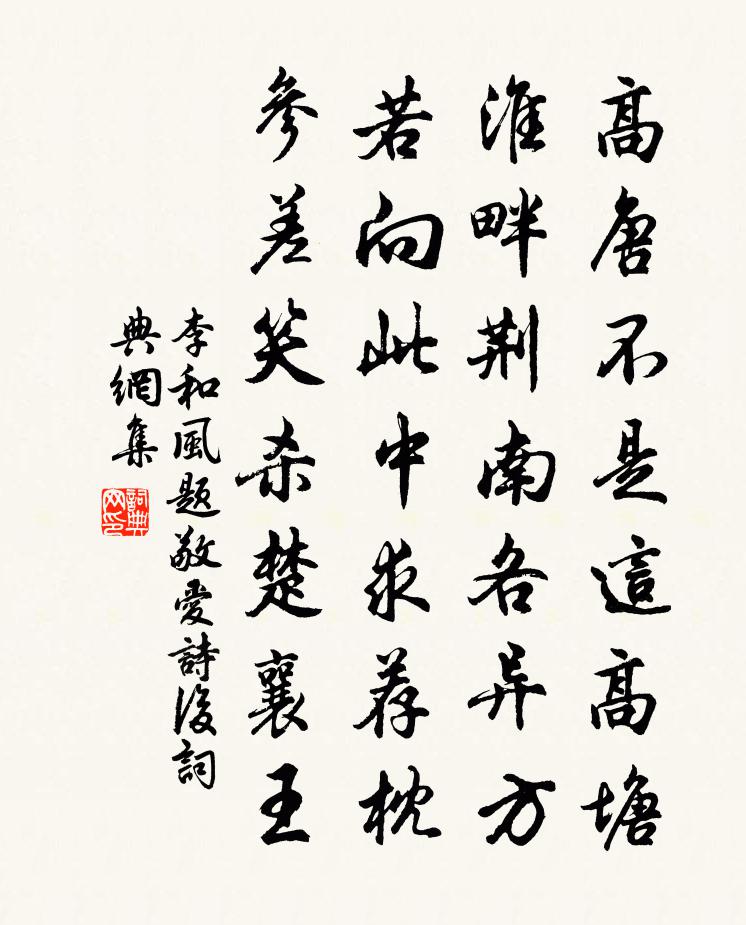 高唐不是這高塘
淮畔荆南各异方
若向此中求荐枕
參差笑杀楚襄王
李和風題敬愛詩後詞
典網集
詞典网印